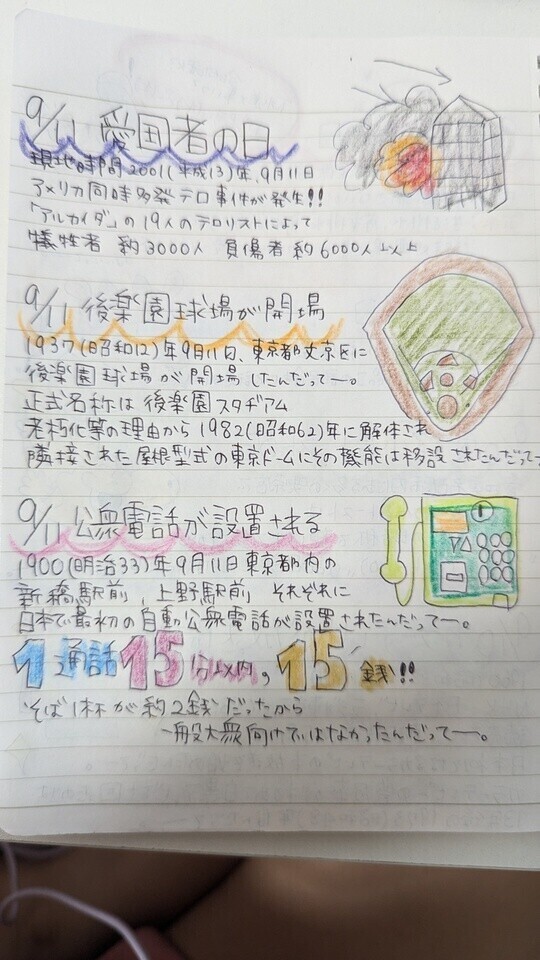 9/11 愛国者の日
現地時間2001(平成13)年、9月11日
アメリカ同時多発テロ事件が発生!!
「アルカイダ」の19人のテロリストによって
犠牲者 約3000人 負傷者 約6000人以上
9/11 後楽園球場が開場
1937(昭和12)年9月11日、東京都文京区に
後楽園球場が開場したんだってー。
正式名称は後楽園スタヂアム
老朽化等の理由から1982(昭和62)年に解体され
隣接された屋根型式の東京ドームにその機能は移設されたんだってー
9/11 公衆電話が設置される
1900(明治33)年9月11日東京都内の
新橋駅前、上野駅前 それぞれに
日本で最初の自動公衆電話が設置されたんだってー。
1通話15分以内、15銭!!
そば1杯が約2銭だったから
一般大衆向けではなかったんだってー。